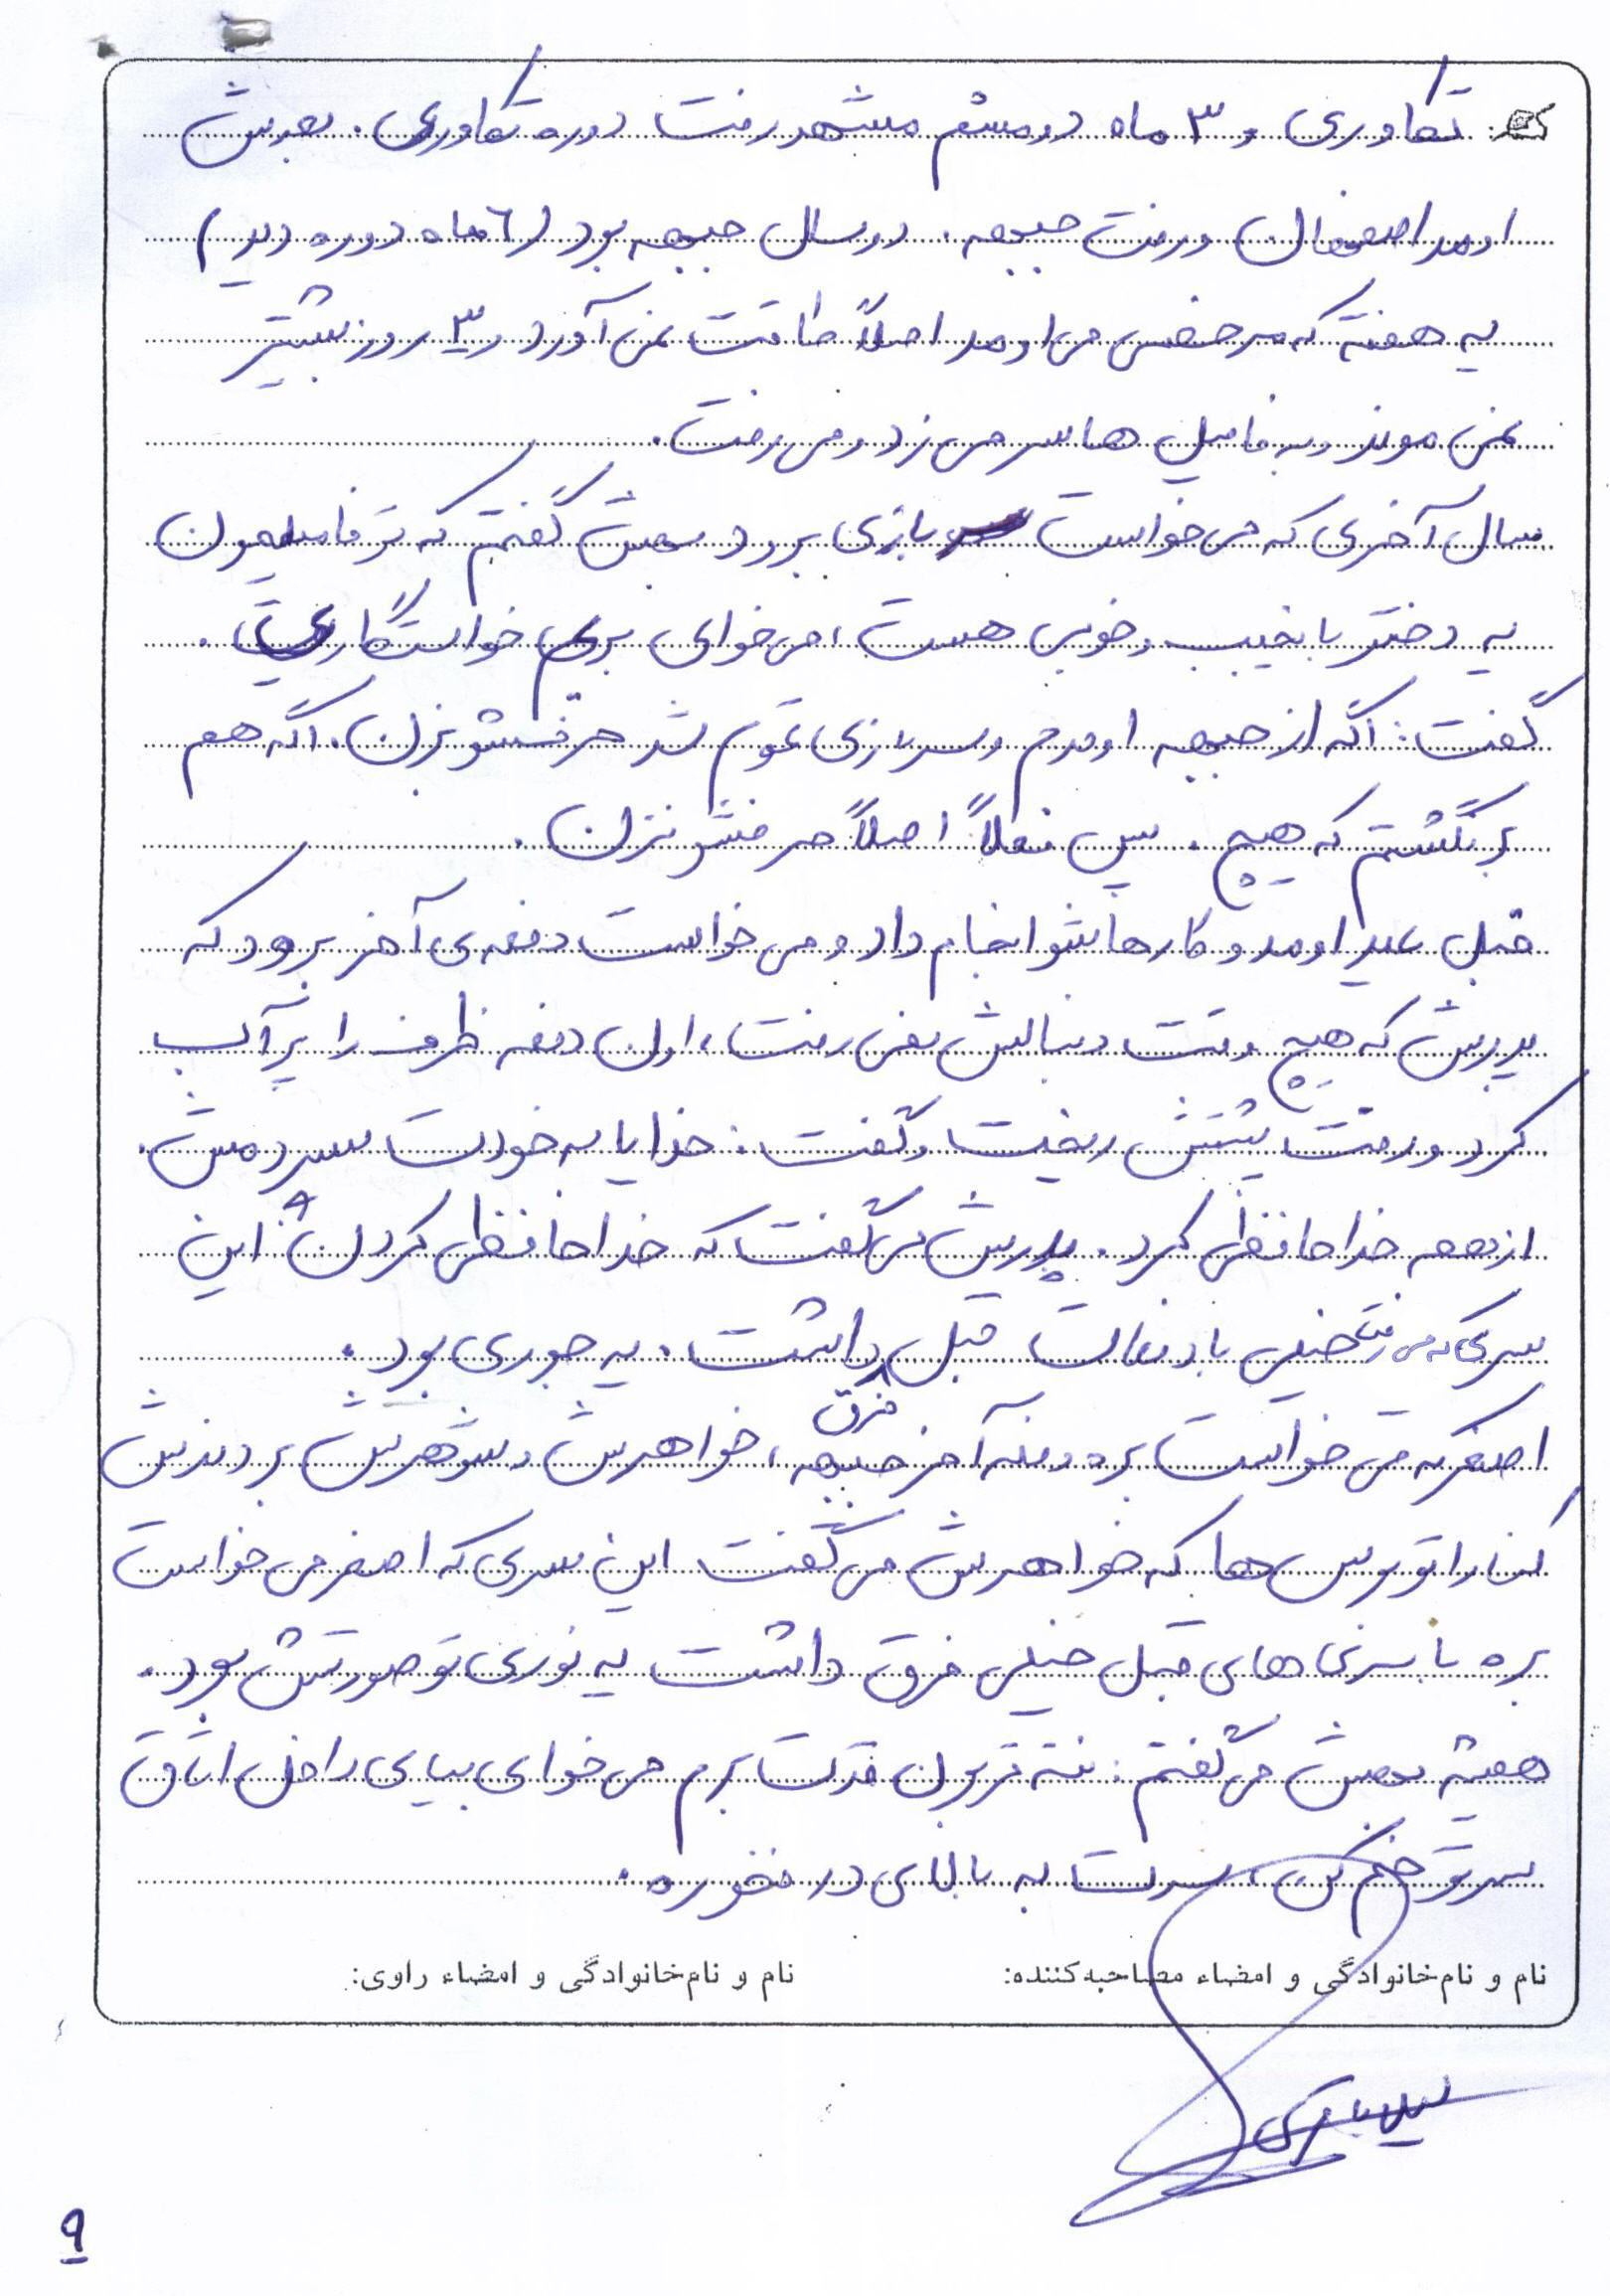 تکاوری و ۳ ماه دومشم مشهد رفت دوره تکاوری. بعدش
اومد اصفهان و رفت جبهه. دو سال جبهه بود (۶ ماه دوره دید)
یه هفته که مرخصی می اومد اصلاً طاقت نمی آورد و ۳ روز بیشتر
نمی موند و به فامیل ها سر می زد و می رفت.
سال آخری که می خواست سربازی برود بهش گفتم که تو فامیلمون
یه دختر با نجیب و خوبی هست، می خوای بریم خواستگاریش.
گفت: اگه از جبهه اومدم و سربازی تموم شد حرفشو بزن. اگه هم
برنگشتم که هیچ. پس فعلاً اصلاً حرفشو نزن.
قبل عید اومد و کارهاشو انجام داد و می خواست دفعه ی آخر برود که
پدرش که هیچ وقت دنبالش نمی رفت، اون دفعه ظرف را پر آب
کرد و رفت پشتش ریخت و گفت: خدایا به خودت سپردمش.
از همه خداحافظی کرد. پدرش می گفت که خداحافظی کردن این
سری که می رفت خیلی با دفعات قبل فرق داشت. یه جوری بود.
اصغر که می خواست بره دفعه آخر جبهه، خواهرش و شوهرش بردندش
کنار اتوبوس ها که خواهرش می گفت این سری که اصغر می خواست
بره با سری های قبل خیلی فرق داشت یه نوری تو صورتش بود.
همیشه بهش می گفتم: ننه قربون قدت برم می خوای بیای داخل اتاق
سرتو خم کن، سرت به بالای در نخوره.
نام و نام‌خانوادگی و امضاء مصاحبه‌کننده: نام و نام‌خانوادگی و امضاء راوی:
لیلا باقری
۹